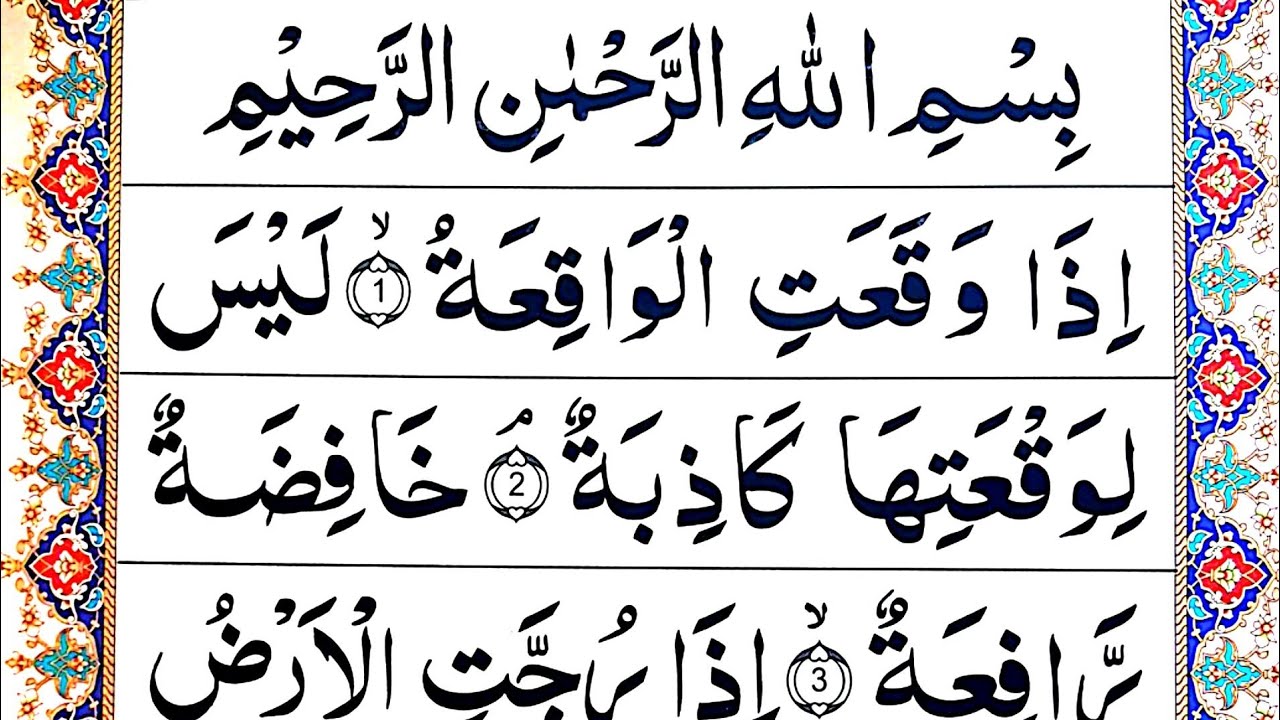 بِسْمِ اللّٰهِ الرَّحْمٰنِ الرَّحِيْمِ
اِذَا وَقَعَتِ الْوَاقِعَةُ ۙ‏1 لَيْسَ
لِوَقْعَتِهَا كَاذِبَةٌ ۘ‏2 خَافِضَةٌ
رَّافِعَةٌ ۙ‏3 اِذَا رُجَّتِ الْاَرْضُ